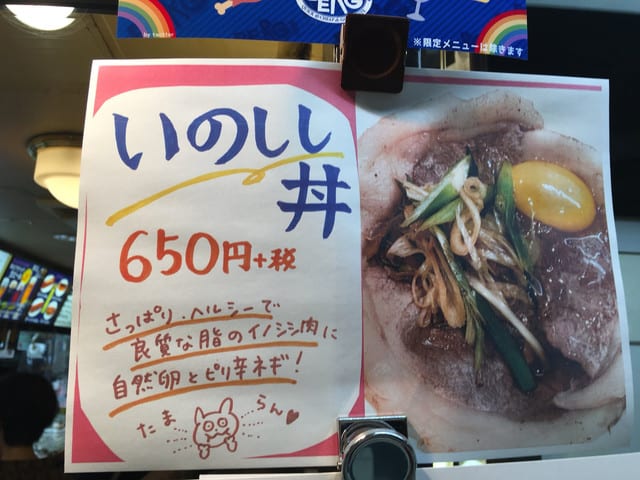 ENG
by twitter
※限定メニューは除きます
いのしし
丼
650円+税
さっぱり・ヘルシーで
良質な脂のイノシシ肉に
自然卵とピリ辛ネギ!
たま らん♥